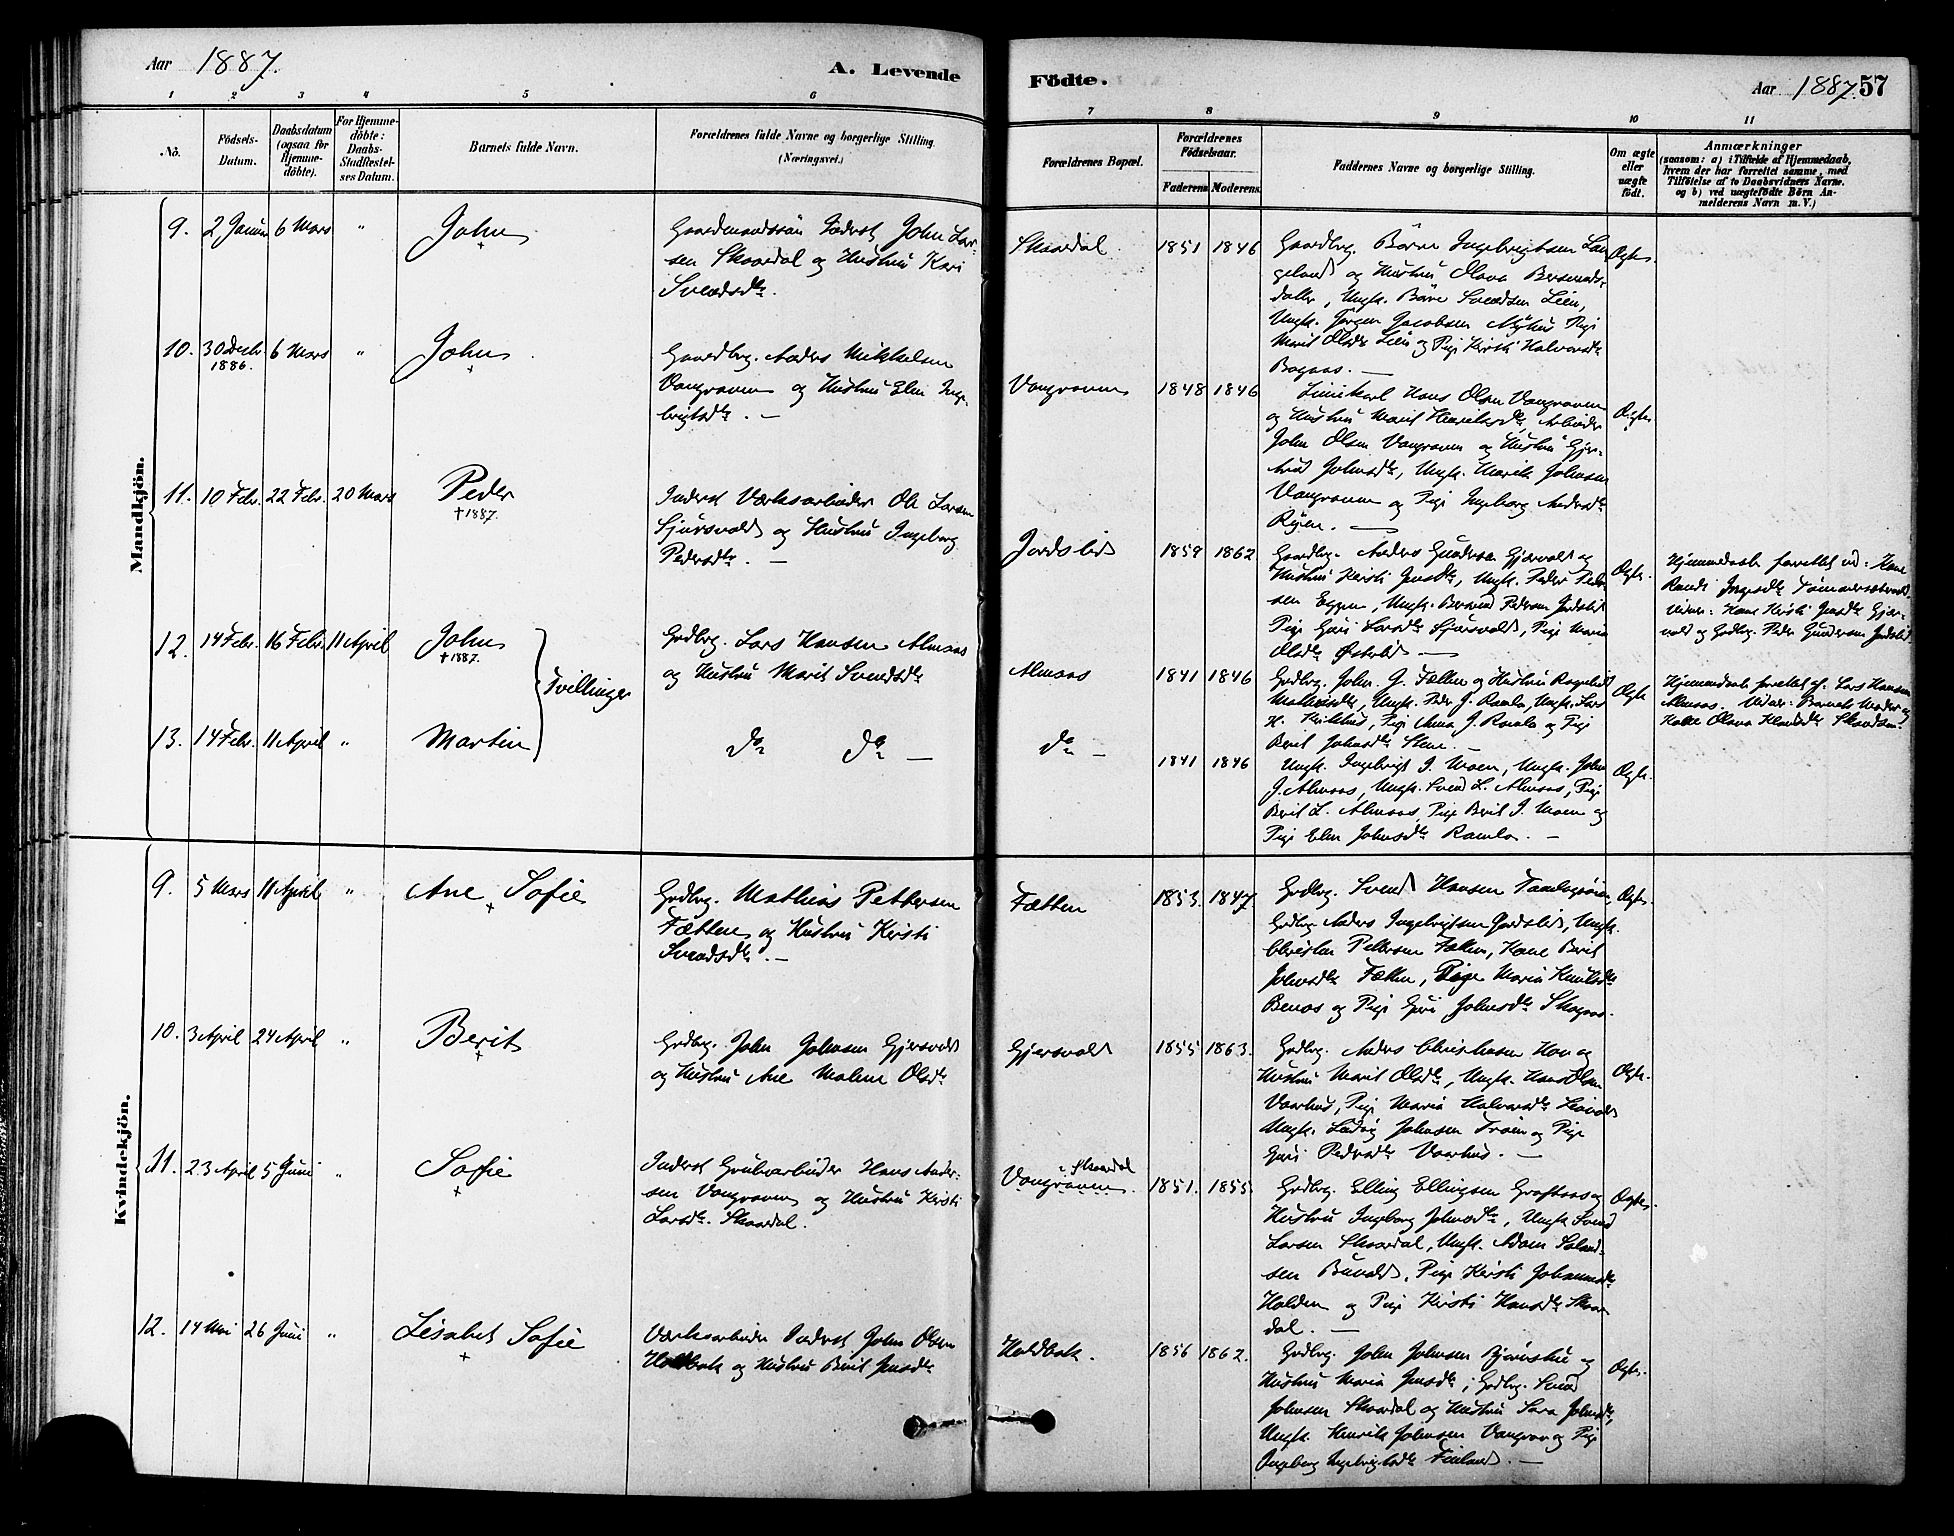 Aar 1887.
A. Levende
Födte.
Aar 1887. 57
1 2 3 4 5 6
7 8 9 10 11
No.
Födsels-
Datum.
Daabsdatum
(ogsaa for
Hjemme-
döbte).
For Hjemme-
döbte:
Daabs-
Stadfæstel-
ses Datum.
Barnets fulde Navn.
Forældrenes fulde Navne og borgerlige Stilling.
(Næringsvei.)
Forældrenes Bopæl.
Forældrenes
Födselsaar.
Faderens Moderens
Faddernes Navne og borgerlige Stilling.
Om ægte
eller
uægte
födt.
Anmærkninger
(saasom: a) i Tilfælde af Hjemmedaab,
hvem der har forrettet samme, med
Tilföielse af to Daabsvidners Navne.
og b) ved uægtefödte Börn An-
melderens Navn m. V.)
Mandkjön.
9. 2 Januar 6 Mars " John
+
Gaardmandssön Inderst John Lar-
sen Skaardal og Hustru Kari
Svendsdtr.
Skaardal 1851 1846
Gaardbrg. Börre Ingebrigtsen Lan-
geland og Hustru Olava Bersvends-
datter, Ungk. Börre Svendsen Lien,
Ungk. Jörgen Jacobsen Nyhus Pige
Marit Olsdr Lien og Pige Kirsti Halvorsdtr
Bogaas. —
Ægte.
10. 30 Decbr. 6 Mars " John
1886. +
Gaardbrg. Anders Mikkelsen
Vongraven og Hustru Elen Inge-
brigtsdtr. —
Vongraven 1848 1846
Hans Olsen Vongraven
og Hustru Marit Henriksdtr, Arbeider
John Olsen Vongraven og Hustru Gjer-
trud Johnsdtr, Ungk. Henrik Johnsen
Vongraven og Pige Ingeborg Andersdtr
Ryen. —
Ægte.
11. 10 Febr. 22 Febr. 20 Mars Peder
+ 1887.
Inderst Værksarbeider Ole Larsen
Sjursvold og Hustru Ingeborg
Pedersdtr. —
Jordslid 1859 1862
Gaardbrg. Anders Gundersen Gjersvold og
Hustru Kirsti Jensdtr, Ungk. Peder Peder-
sen Eggen, Ungk. Bersvend Pedersen Jordslid
Pige Guri Larsdtr Sjursvold, Pige Maria
Olsdtr Österlid —
Ægte.
Hjemmedaab forrettet ved: Kone
Randi
Vidner: Kone Kirsti Jensdtr Gjers-
vold og Grdbrg. Peder Gundersen Jordslid
12. 14 Febr. 16 Febr. 11 April John
+ 1887.
Tvillinger
Grdbrg. Lars Hansen Almaas
og Hustru Marit Svendsdtr
Almaas 1841 1846
Grdbrg. John G. Fætten og Hustru Ragnhild
Ungk. Peder J. Ramlo, Ungk. Lars
H. Kirkhus, Pige Anna J. Ramlo og Pige
Berit Johnsdtr Stene. —
Ægte
Hjemmedaab forrettet af: Lars Hansen
Almaas. Vidner: Barnets Moder og
Kone Olava
13. 14 Febr. 11 April " Martin
Do Do —
Do — 1841 1846
Ungk. Ingebrigt J. Moen, Ungk. John
J. Almaas, Ungk. Svend L. Almaas, Pige
Berit L. Almaas, Pige Berit J. Moen og
Pige Elen Johnsdtr Ramlo. —
Ægte.
Kvindekjön.
9. 5 Mars 11 April " Ane Sofie
+
Grdbrg. Mathias Pettersen
Fætten og Hustru Kirsti
Svendsdtr. —
Fætten 1853. 1847
Grdbrg. Svend Hansen
Grdbrg. Anders Ingebrigtsen Jordslid, Ungk.
Christen Pettersen Fætten, Kone Berit
Johnsdtr Fætten, Pige Maria Knudsdtr
Benos og Pige Guri Johnsdtr Skogaas.
Ægte.
10. 3 April 24 April " Berit
+
Grdbrg. John Johnsen Gjersvold
og Hustru Ane Malene Olsdtr
Gjersvold 1855 1863.
Grdbrg. Anders Christensen Hov og
Hustru Marit Olsdtr, Ungk. Hans Olsen
Vaarhus, Pige Maria Halvorsdtr
Ungk. Ludvig Johnsen Troen og Pige
Guri Pedersdtr Vaarhus. —
Ægte.
11. 23 April 5 Juni " Sofie
+
Inderst Grubearbeider Hans Ander-
sen Vongraven og Hustru Kirsti
Larsdtr. Skaardal.
Skaardal
Vongraven. 1851. 1855
Grdbrg. Elling Ellingsen Graftaas og
Hustru Ingeborg Johnsdtr, Ungk Svend
Larsen Skaardal, Ungk. Adam
sen Buvold, Pige Kirsti Johannesdtr
Holden og Pige Kirsti Hansdtr Skaar-
dal. —
Ægte.
12. 14 Mai 26 Juni " Lisabet Sofie
+
Værksarbeider Inderst John Olsen
Holdbak og Hustru Berit Jensdtr
Holdbak. 1856 1862.
Grdbrg. John Johnsen og
Hustru Maria Jensdtr, Grdbrg. Svend
Johnsen Skaardal og Hustru Sara Johnsdtr,
Ungk. Henrik Johnsen Vongrav og Pige
Ingeborg Ingebrigtsdtr Finland. —
Ægte.